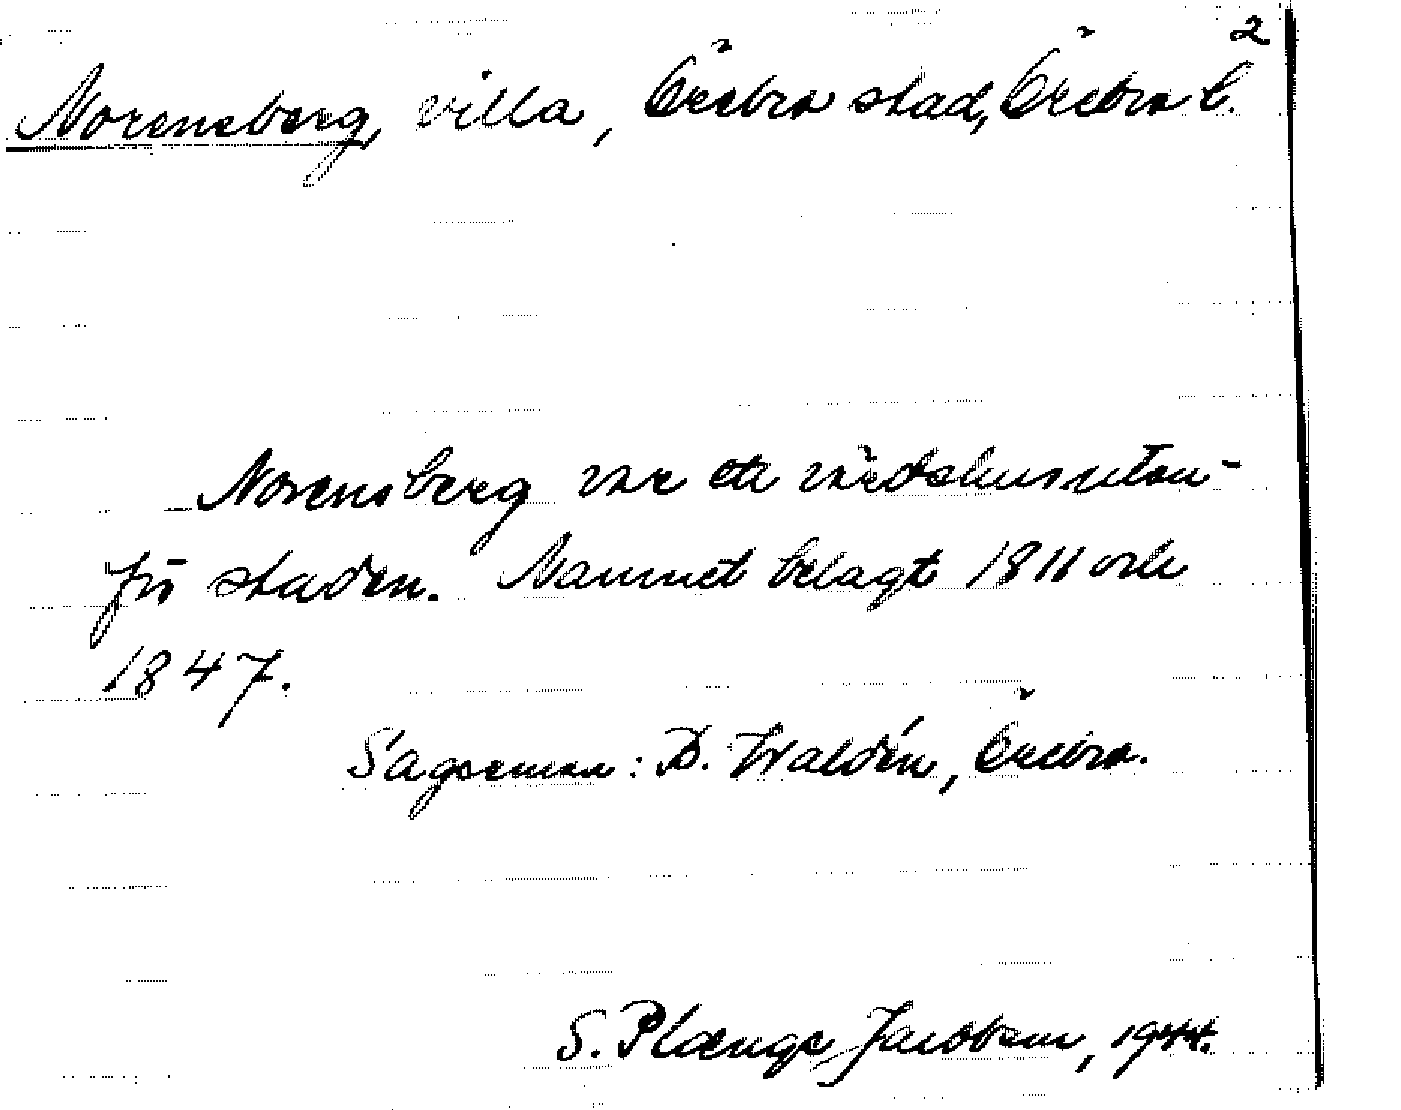 2
Norensberg, villa, Örebro stad, Örebro l.
Norensberg var ett värdshus utan-
för staden. Namnet belagt 1811 och
1847.
Sagesman: B. Waldén, Örebro.
S. Plænge Jacobson, 1944.